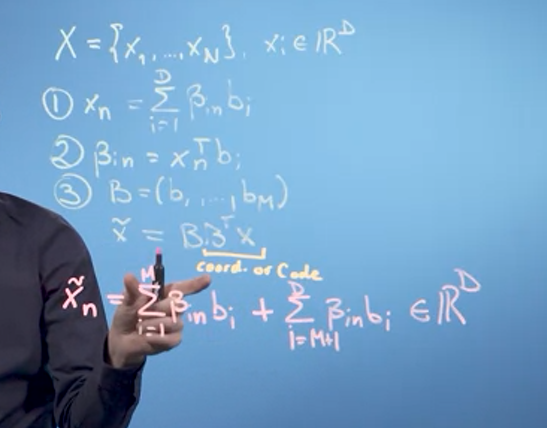 X = {x₁, ..., x_N}, xᵢ ∈ ℝᴰ
① xₙ = Σᵢ₌₁ᴰ βᵢₙ bᵢ
② βᵢₙ = xₙᵀ bᵢ
③ B = (b₁, ..., b_M)
x̃ = BBᵀx
coord. or Code
x̃ₙ = Σᵢ₌₁ᴹ βᵢₙ bᵢ + Σᵢ₌M₊₁ᴰ βᵢₙ bᵢ ∈ ℝᴰ